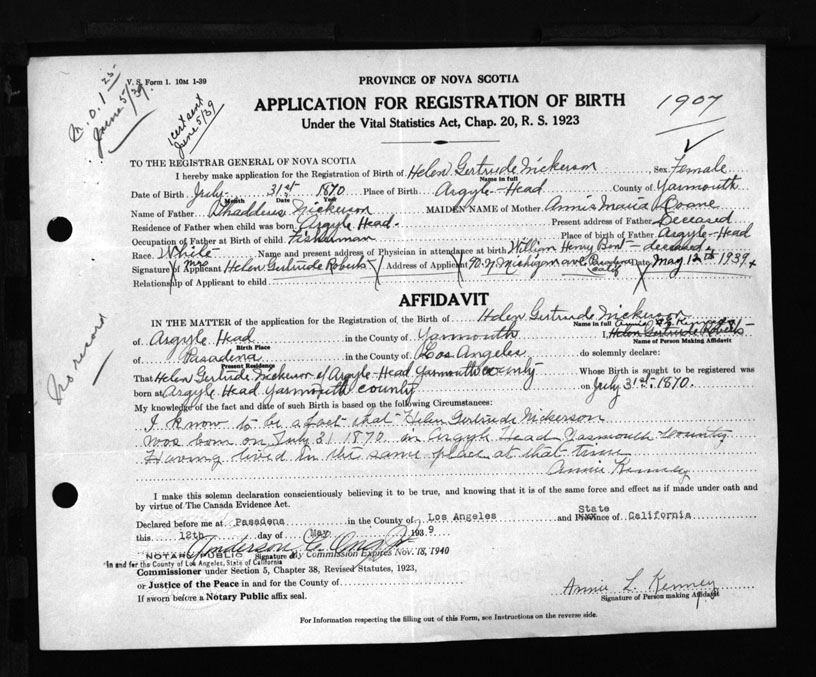 V. S. Form 1. 10M 1-39
M.O. 1 25
June 5/39
1 cert sent
June 5/39
PROVINCE OF NOVA SCOTIA
APPLICATION FOR REGISTRATION OF BIRTH
Under the Vital Statistics Act, Chap. 20, R. S. 1923
1907
TO THE REGISTRAR GENERAL OF NOVA SCOTIA
I hereby make application for the Registration of Birth of Helen Gertrude Nickerson Sex Female
Name in full
Date of Birth July 31st 1870 Place of Birth Argyle-Head County of Yarmouth
Month Date Year
Name of Father Nickerson MAIDEN NAME of Mother Annis Maria
Residence of Father when child was born Argyle Head. Present address of Father Deceased
Occupation of Father at Birth of child Fisherman Place of birth of Father Argyle-Head
Race. White Name and present address of Physician in attendance at birth William Henry deceased
Signature of Applicant Mrs Helen Gertrude Roberts Address of Applicant Michigan ave. Pasadena Calif Date May 12th 1939
Relationship of Applicant to child
AFFIDAVIT
IN THE MATTER of the application for the Registration of the Birth of Helen Gertrude Nickerson
Name in full
of Argyle Head in the County of Yarmouth I, Helen Gertrude Roberts
Birth Place Name of Person Making Affidavit
of Pasadena in the County of Los Angeles do solemnly declare:
Present Residence
That Helen Gertrude Nickerson of Argyle-Head Yarmouth County Whose Birth is sought to be registered was
born at Argyle Head Yarmouth County on July 31st 1870.
My knowledge of the fact and date of such Birth is based on the following Circumstances:
I know to be a fact that Helen Gertrude Nickerson
was born on July 31 1870 in Argyle Head Yarmouth County
Having lived in the same place at that time
Annie Kenney
No record
I make this solemn declaration conscientiously believing it to be true, and knowing that it is of the same force and effect as if made under oath and
by virtue of The Canada Evidence Act.
Declared before me at Pasadena in the County of Los Angeles and State Province of California
this 12th day of May 1939
NOTARY PUBLIC Signature My Commission Expires Nov. 18, 1940
In and for the County of Los Angeles, State of California
Commissioner under Section 5, Chapter 38, Revised Statutes, 1923,
or Justice of the Peace in and for the County of
If sworn before a Notary Public affix seal.
Annie L. Kenney
Signature of Person making Affidavit
For Information respecting the filling out of this Form, see Instructions on the reverse side.